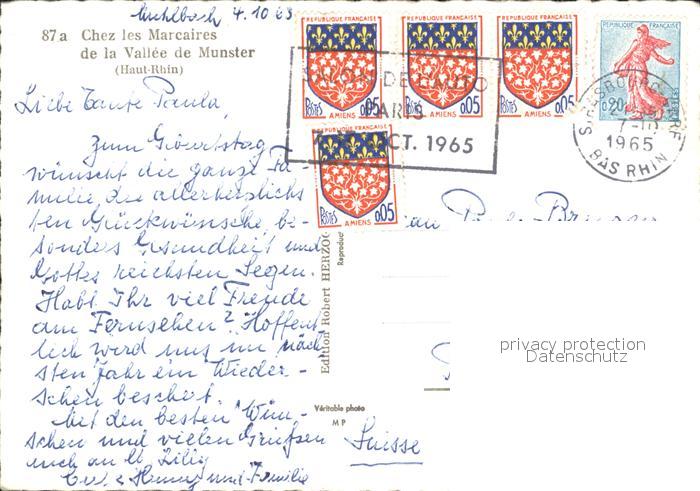 Muhlbach 4.10.65
87a Chez les Marcaires
de la Vallée de Munster
(Haut-Rhin)
Liebe Tante Paula,
Zum Geburtstag
wünscht die ganze Fa-
milie die allerherzlichs-
ten Glückwünsche, be-
sonders Gesundheit und
Gottes reichsten Segen.
Habt Ihr viel Freude
am Fernsehen? Hoffent-
lich wird uns im näch-
sten Jahr ein Wieder-
sehen beschert.
Mit den besten Wün-
schen und vielen Grüssen
auch an
und Familie
REPUBLIQUE FRANÇAISE
POSTES 0,05
AMIENS
REPUBLIQUE FRANÇAISE
POSTES 0,05
AMIENS
REPUBLIQUE FRANÇAISE
POSTES 0,05
AMIENS
REPUBLIQUE FRANÇAISE
POSTES 0,05
AMIENS
REPUBLIQUE FRANÇAISE
0,20
POSTES
SALON DE L'AUTO
PARIS
OCT. 1965
STRASBOURG GARE
7-10
1965
BAS RHIN
Edition Robert HERZOG
Reproduct
Véritable photo
M P
Suisse
privacy protection
Datenschutz